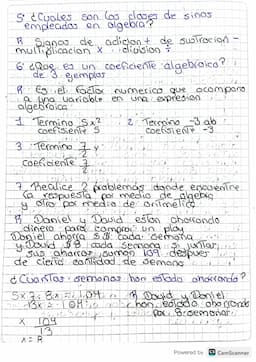 5 ¿Cuales son los clases de sinos
empleados en algebra?
R Signos de adicion + de sustracion -
multiplicacion x division ÷
6 ¿Que es un coeficiente algebraico?
de 3 ejemplos
R Es el factor numerico que acompaña
a una variable en una expresion
algebraica
1 Termino 5x² 2. Termino -3 ab
coeficiente 5 coeficiente -3
3 Termino 7/2 y
coeficiente 7/2
7 Realice 2 problemas donde encuentre
la respuesta por medio de algebra
y otro por medio de aritmetica
R Daniel y David estan ahorrando
dinero para comprar un play
Daniel ahorra 5$ cada semana
y David $8 cada semana si juntar
sus ahorros suman 104 despues
de cierta cantidad de semana
¿Cuantas semanas han estado ahorrando?
R David y Daniel
13x = 104 han estado ahorrando
x 104 por 8 semanas
13
x = 8
Powered by CamScanner